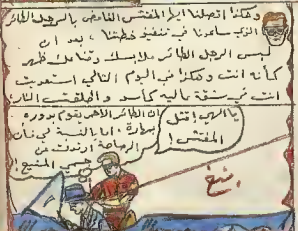 وهكذا اتصلنا ايها المفتش الغامض بالرجل الطائر
الذي ساعدنا في تنفيذ خطتنا ، بعد ان
لبس الرجل الطائر ملابسك وقناعك ظهر
كأنه انت وهكذا في اليوم التالي استعديت
انت في شقة باليه كأسد واطلقت النار
يا الهي اقتل
المفتش !
ان الطائر الأحمر يقوم بدوره
ببطولة ، اما بالنسبة لي فأن
الرصاصة ارتدت عن
جسمي المنيع !